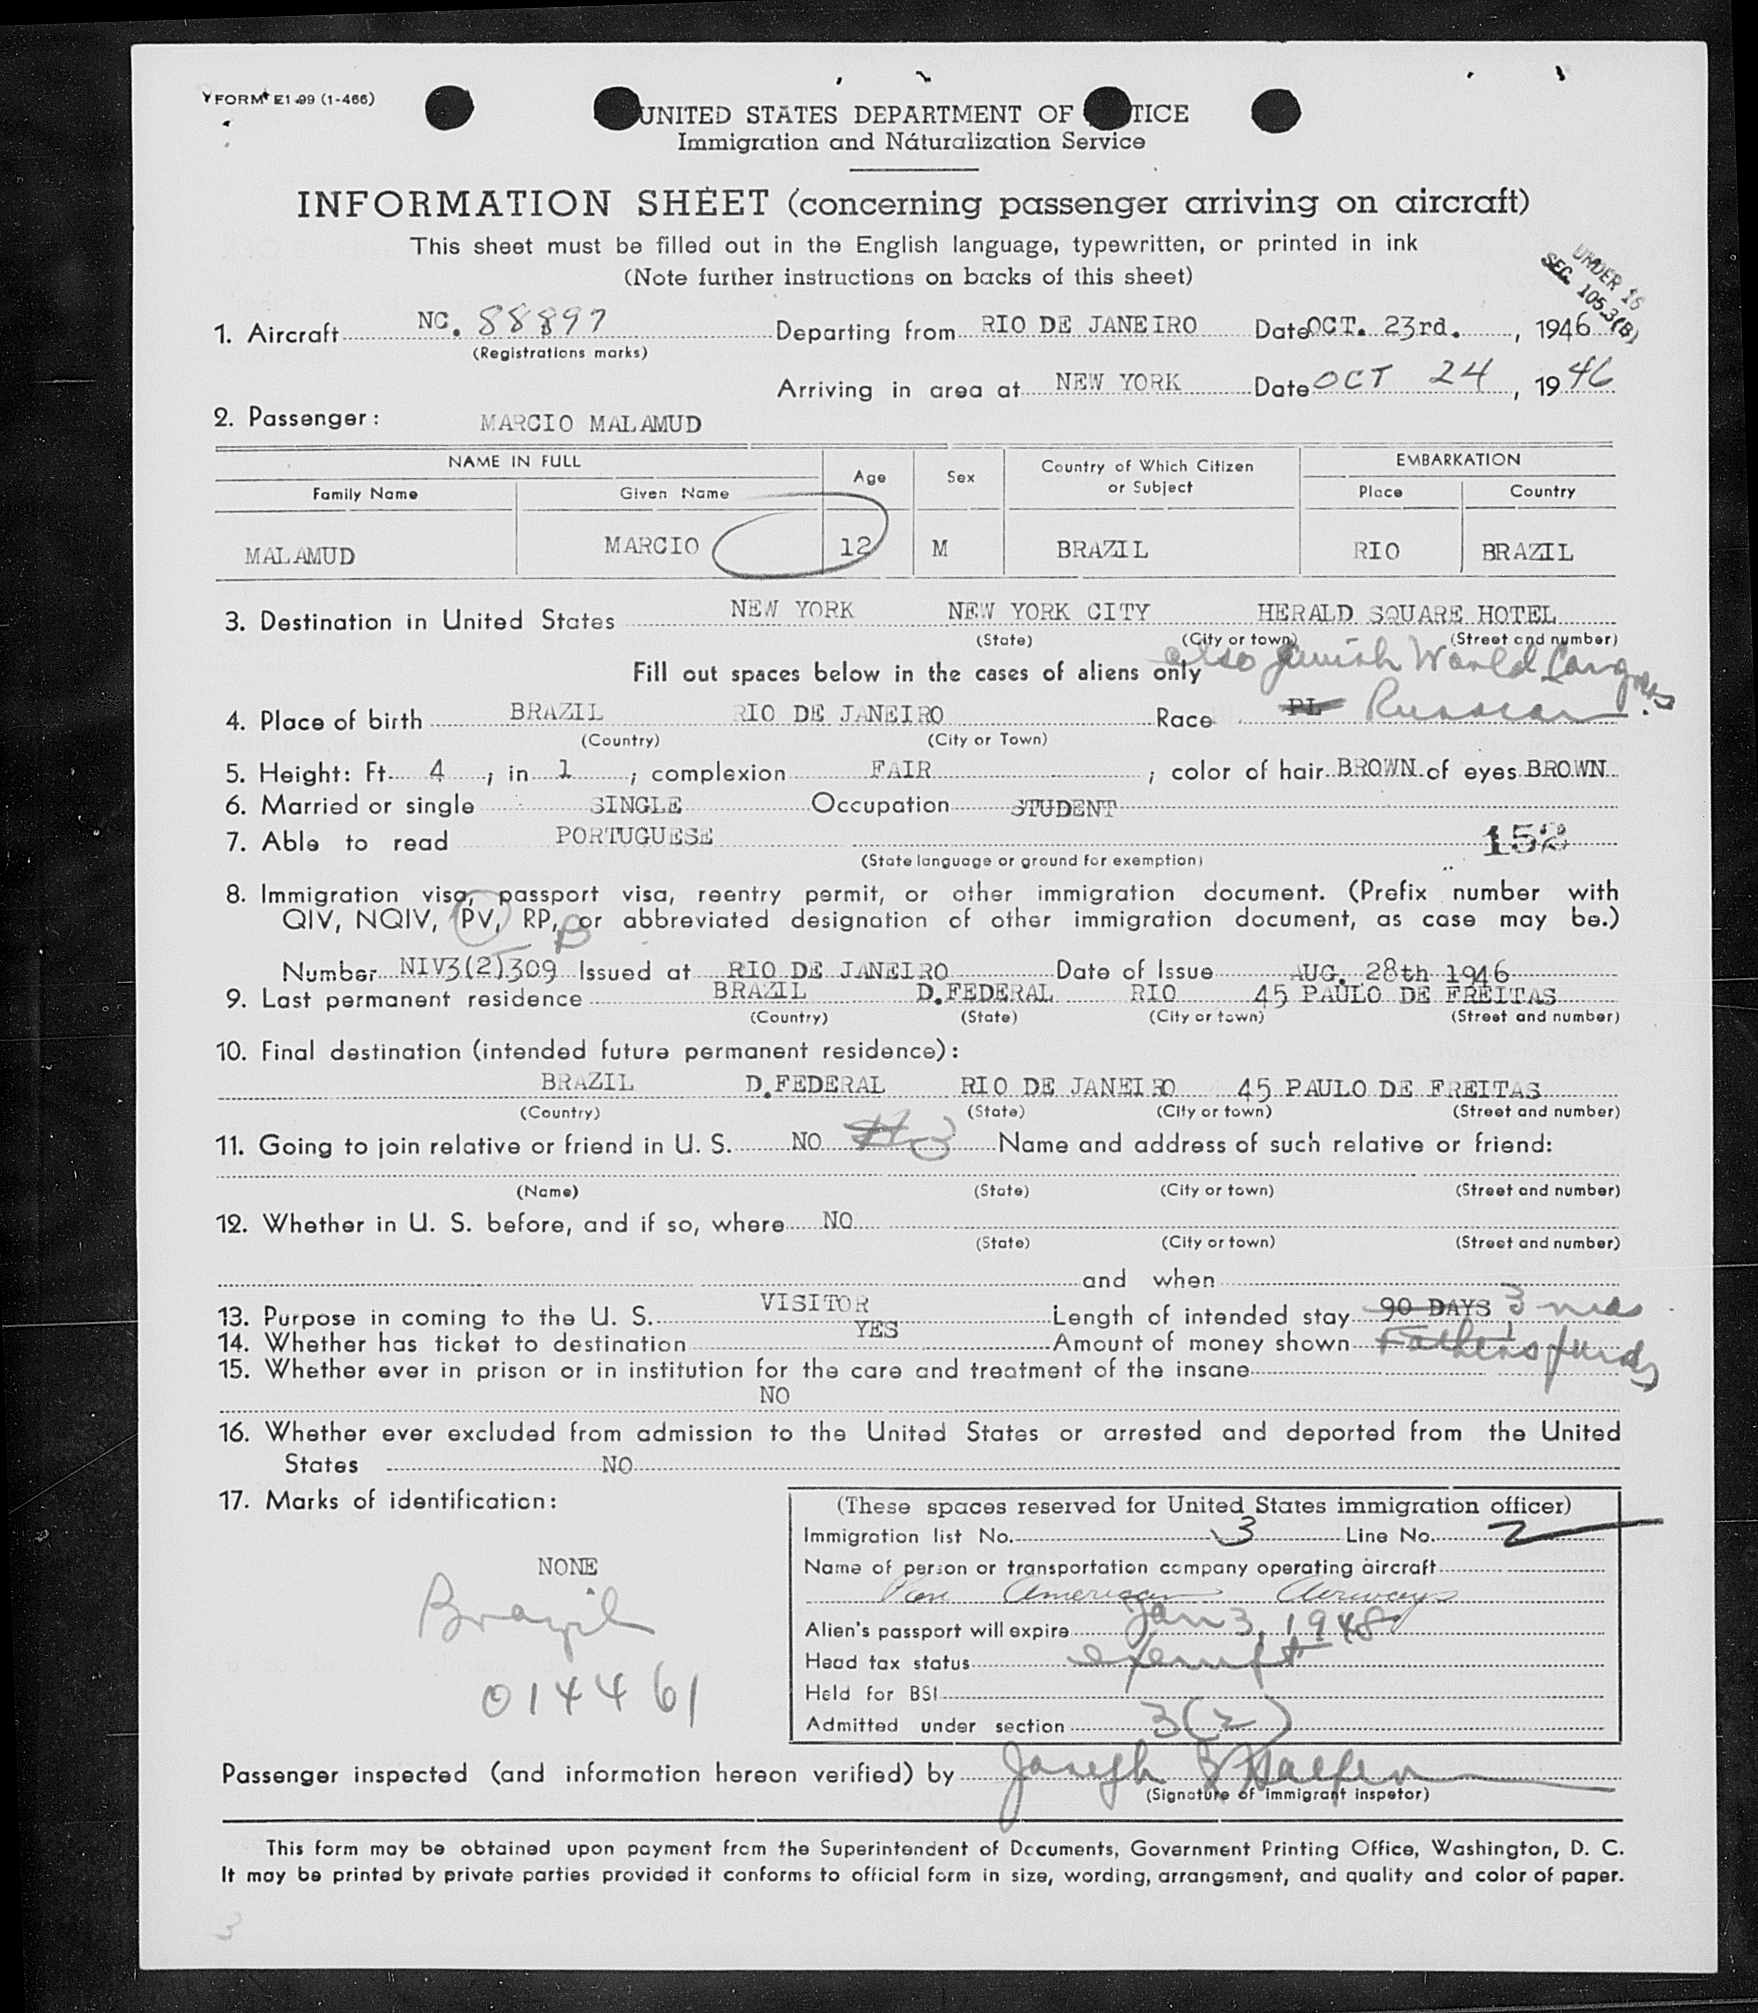 FORM E1-99 (1-466)
UNITED STATES DEPARTMENT OF TICE
Immigration and Naturalization Service
INFORMATION SHEET (concerning passenger arriving on aircraft)
This sheet must be filled out in the English language, typewritten, or printed in ink
(Note further instructions on backs of this sheet)
UNDER 16
SEC. 105.3(B)
1. Aircraft NC. 88897 Departing from RIO DE JANEIRO Date OCT. 23rd. , 1946
(Registrations marks)
Arriving in area at NEW YORK Date OCT 24 , 1946
2. Passenger: MARCIO MALAMUD
NAME IN FULL Age Sex Country of Which Citizen or Subject EMBARKATION
Family Name Given Name Place Country
MALAMUD MARCIO 12 M BRAZIL RIO BRAZIL
3. Destination in United States NEW YORK NEW YORK CITY HERALD SQUARE HOTEL
(State) (City or town) (Street and number)
Fill out spaces below in the cases of aliens only also Jewish World Congress
4. Place of birth BRAZIL RIO DE JANEIRO Race PL Russian
(Country) (City or Town)
5. Height: Ft. 4 ; in 1 ; complexion FAIR ; color of hair BROWN of eyes BROWN
6. Married or single SINGLE Occupation STUDENT
7. Able to read PORTUGUESE 152
(State language or ground for exemption)
8. Immigration visa, passport visa, reentry permit, or other immigration document. (Prefix number with
QIV, NQIV, PV, RP, or abbreviated designation of other immigration document, as case may be.)
B
Number NIV3(2)309 Issued at RIO DE JANEIRO Date of Issue AUG. 28th 1946
9. Last permanent residence BRAZIL D.FEDERAL RIO 45 PAULO DE FREITAS
(Country) (State) (City or town) (Street and number)
10. Final destination (intended future permanent residence):
BRAZIL D.FEDERAL RIO DE JANEIRO 45 PAULO DE FREITAS
(Country) (State) (City or town) (Street and number)
11. Going to join relative or friend in U. S. NO Name and address of such relative or friend:
(Name) (State) (City or town) (Street and number)
12. Whether in U. S. before, and if so, where NO
(State) (City or town) (Street and number)
and when
13. Purpose in coming to the U. S. VISITOR Length of intended stay 90 DAYS 3 mos
14. Whether has ticket to destination YES Amount of money shown Father's funds
15. Whether ever in prison or in institution for the care and treatment of the insane
NO
16. Whether ever excluded from admission to the United States or arrested and deported from the United
States NO
17. Marks of identification:
NONE
Brazil
014461
(These spaces reserved for United States immigration officer)
Immigration list No. 3 Line No. 2
Name of person or transportation company operating aircraft
Pan American Airways
Alien's passport will expire Jan 3, 1948
Head tax status exempt
Held for BSI
Admitted under section 3(2)
Passenger inspected (and information hereon verified) by Joseph B Halpern
(Signature of immigrant inspetor)
This form may be obtained upon payment from the Superintendent of Documents, Government Printing Office, Washington, D. C.
It may be printed by private parties provided it conforms to official form in size, wording, arrangement, and quality and color of paper.
3